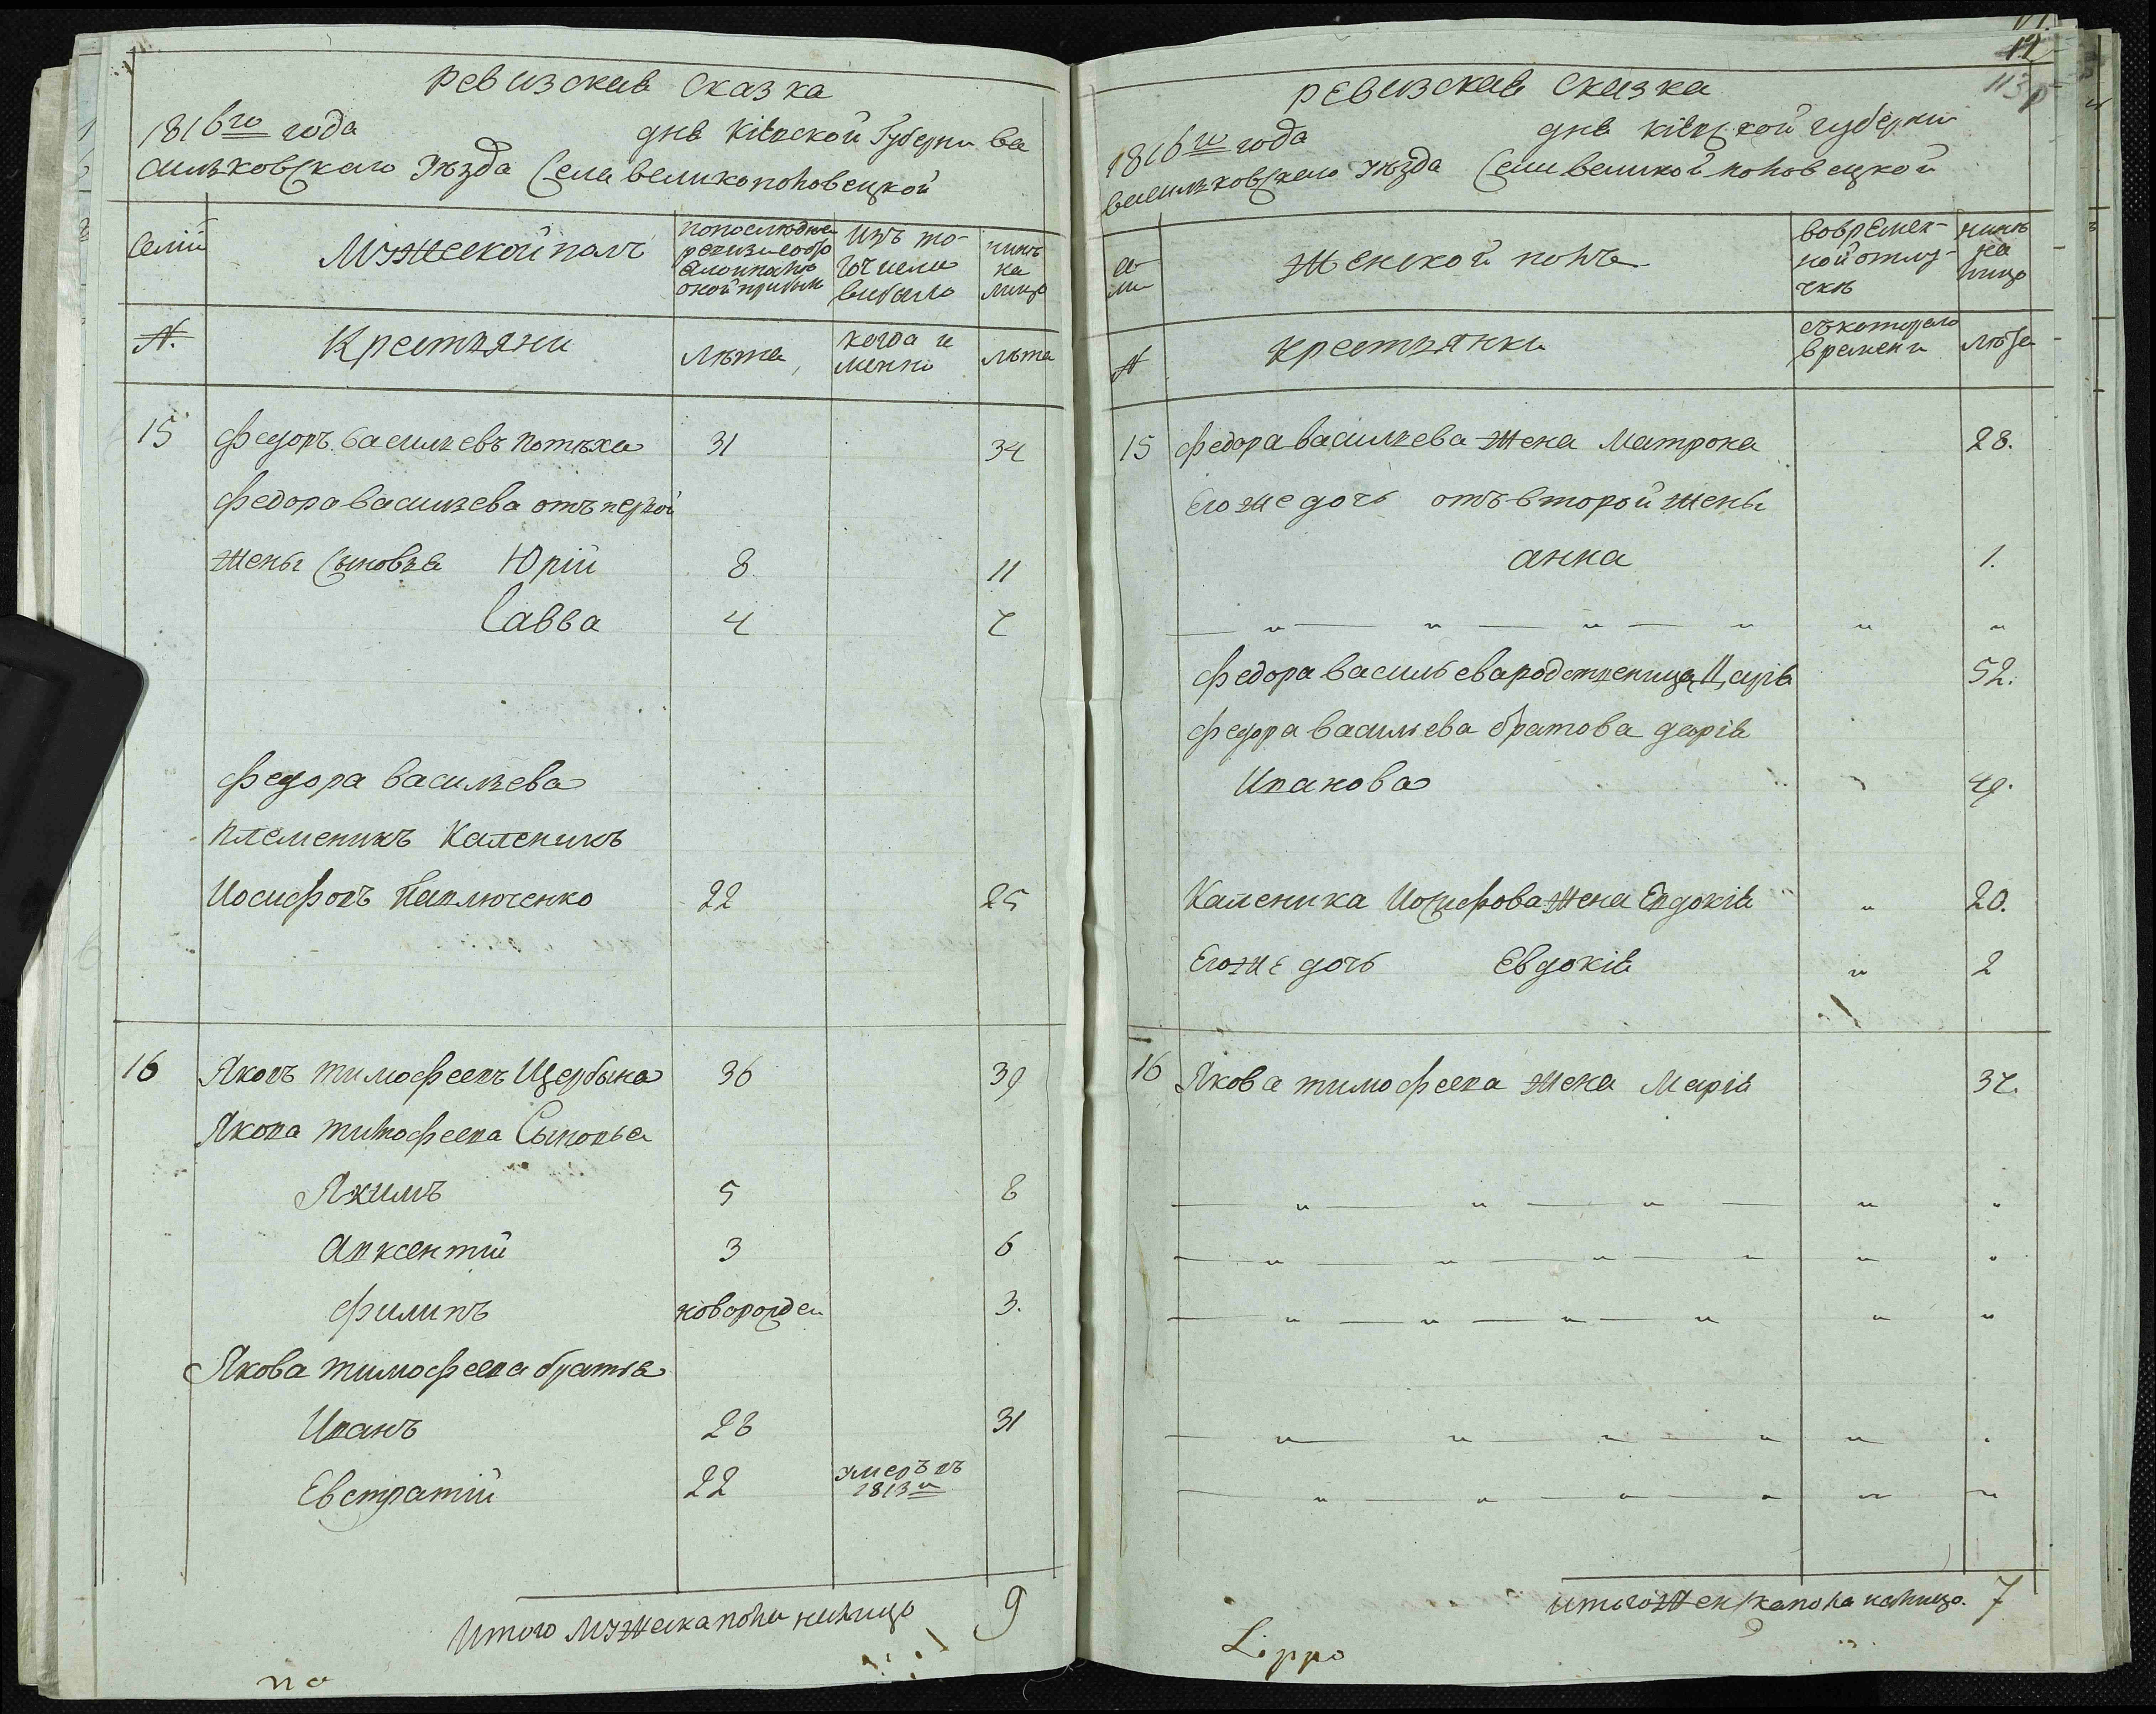 Ревизская сказка
1816го года дня Кіевской Губерни Ва
сильковскаго Уѣзда Села Великополовецкой
Семіи
Мужеской полъ
По последней ревизіи состояло и после оной прибыло
Изъ того числа выбыло
нинѣ на лицо
№.
Крестьяни
Лѣта
когда именно
лѣта
15 Федоръ Васильевъ Потѣха 31 34
Федора Васильева отъ первой
жены Сыновья Юрій 8 11
Савва 4 7
Федора Васильева
племеникъ Каленикъ
Иосифовъ Павлюченко 22 25
16 Яковъ Тимофеевъ Щербына 36 39
Якова Тимофеева Сыновья
Якимъ 5 8
Авксентій 3 6
Филипъ новорожден 3.
Якова Тимофеева братья
Иванъ 28 31
Евстратій 22 умеръ въ 1813м
Итого мужеска пола налицо 9
но
12
113
Ревизская Сказка
1816го года дня Кіевской губерніи
Васильковскаго Уѣзда Села Великой половецкой
семи
Женской полъ
Во временной отлучкѣ
нинѣ на лицо
№
Крестьянки
съ котораго времени
лѣта
15 Федора Васильева жена Матрона 28.
Его же дочь отъ второй жены
Анна 1.
— „ — „ — „ — „ „ „
Федора Васильева родственица Дарія 52.
Федора Васильева братова Дарія
Иванова 49.
Каленика Иосифова жена Евдокія „ 20.
Его же дочь Евдокія „ 2
16 Якова Тимофеева жена Марія 37.
— „ — „ — „ — „ „
— „ — „ — „ — „ „ „
— „ — „ — „ — „ „ „
— „ — „ — „ — „ „ „
— „ — „ — „ — „ „ „
Итого Женска пола налицо. 7